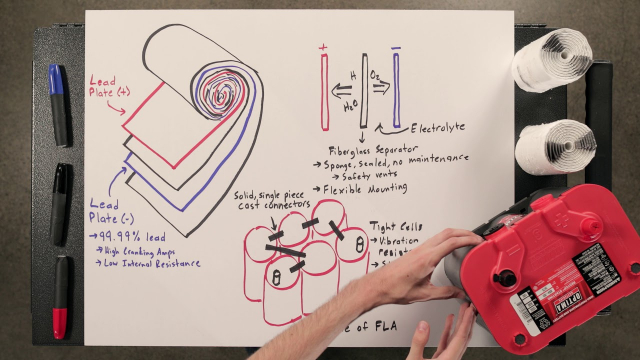 Lead
Plate (+)
Lead
Plate (-)
→ 99.99% lead
→ High Cranking Amps
→ Low Internal Resistance
+
−
H
O2
H2O
Electrolyte
Fiberglass Separator
→ Sponge, sealed, no maintenance
→ Safety vents
→ Flexible Mounting
Solid, single piece
cast connectors
Tight Cells
→ Vibration
of FLA
OPTIMA